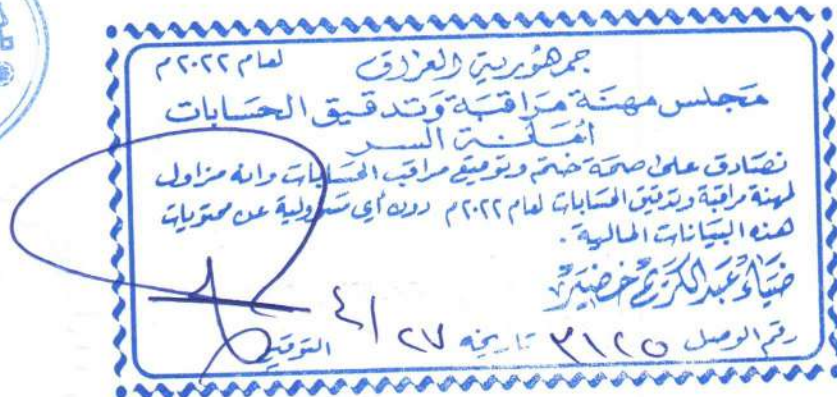 جمهورية العراق لعام ٢٠٢٢ م
مجلس مهنة مراقبة وتدقيق الحسابات
أمانة السر
نصادق على صحة ختم وتوقيع مراقب الحسابات وانه مزاول
لمهنة مراقبة وتدقيق الحسابات لعام ٢٠٢٢ م دون أي مسؤولية عن محتويات
هذه البيانات المالية .
ضياء عبد الكريم خضير
رقم الوصل ٣١٢٥ تاريخه ٤/٢٧ التوقيع